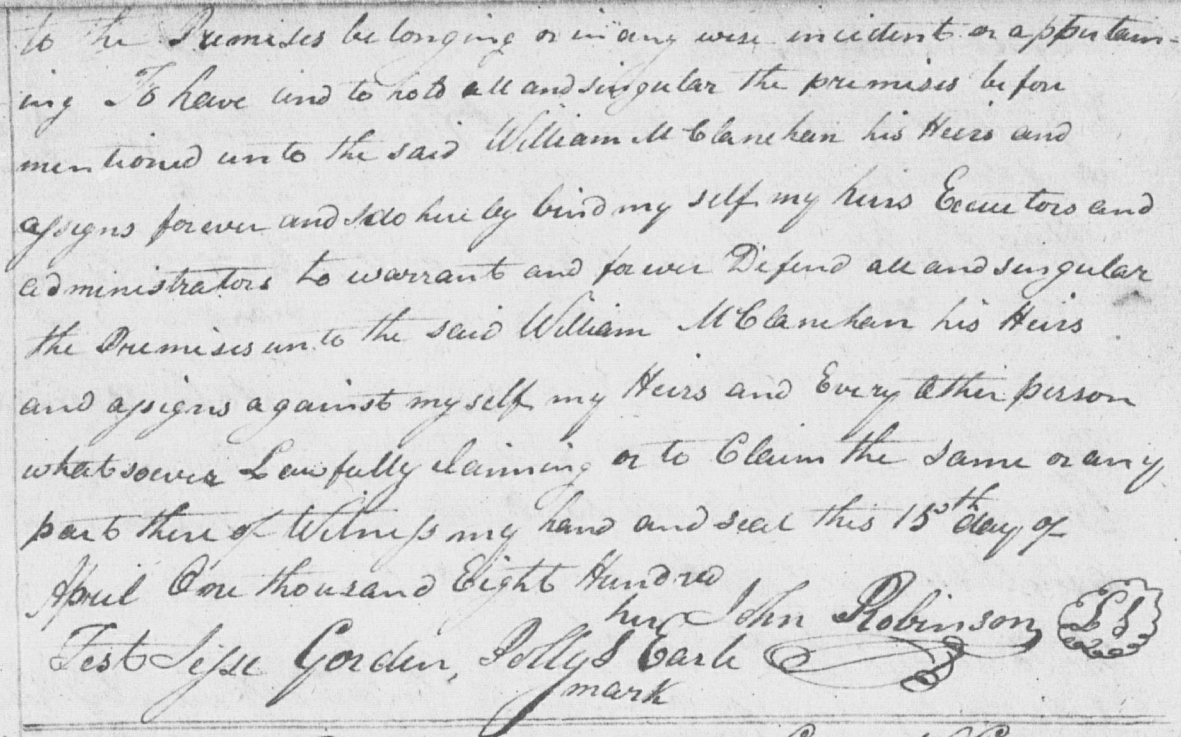 to the Premises belonging or in any wise incident or appertain=
ing To have and to hold all and singular the premises before
mentioned unto the said William McClanehan his Heirs and
assigns forever and I do hereby bind my self my heirs Executors and
administrators to warrant and forever Defend all and singular
the Premises unto the said William McClanehan his Heirs
and assigns against myself my Heirs and Every Other person
whatsoever Lawfully claiming or to Claim the same or any
part there of Witness my hand and seal this 15th day of
April One thousand Eight Hundred
her John Robinson LS
Test Jesse Gorden, Polly S Earle
mark